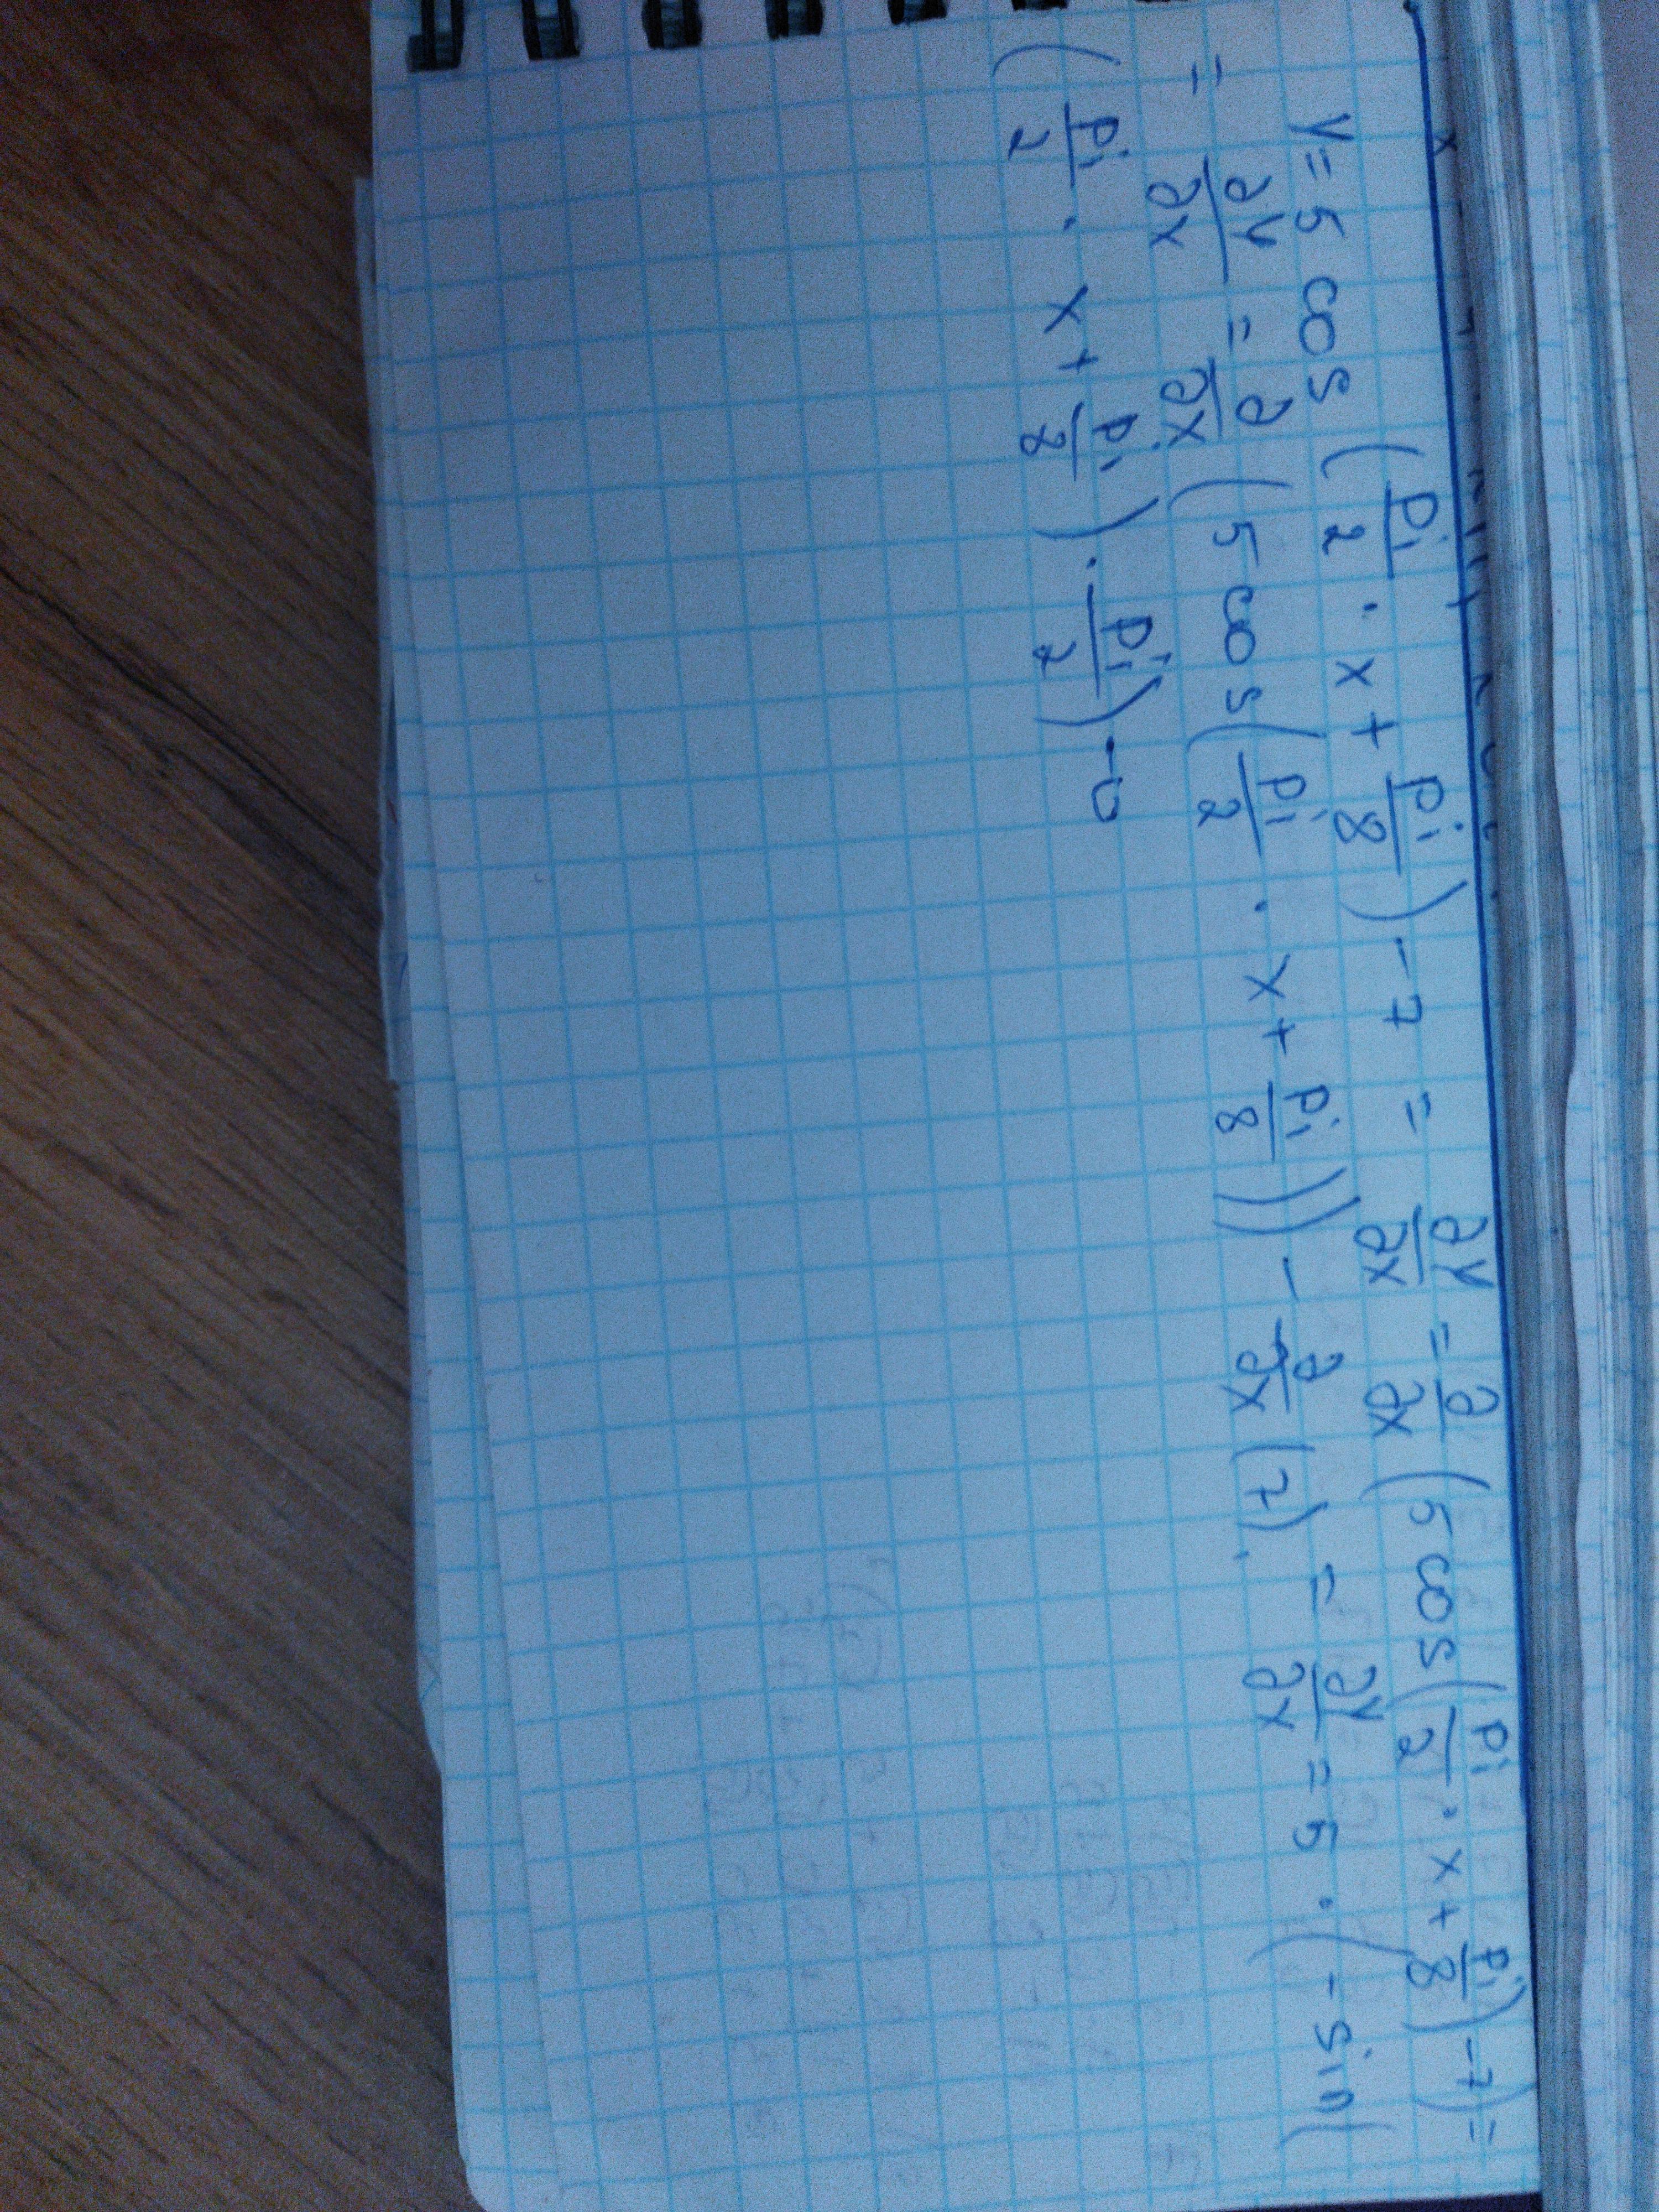 y = 5 cos (pi/2 · x + pi/8) - 7 = ∂y/∂x = ∂/∂x (5 cos (pi/2 · x + pi/8) - 7) =
= ∂y/∂x = ∂/∂x (5 cos (pi/2 · x + pi/8)) - ∂/∂x (7) = ∂y/∂x = 5 · (- sin (
(pi/2 · x + pi/8) · pi/2) - 0